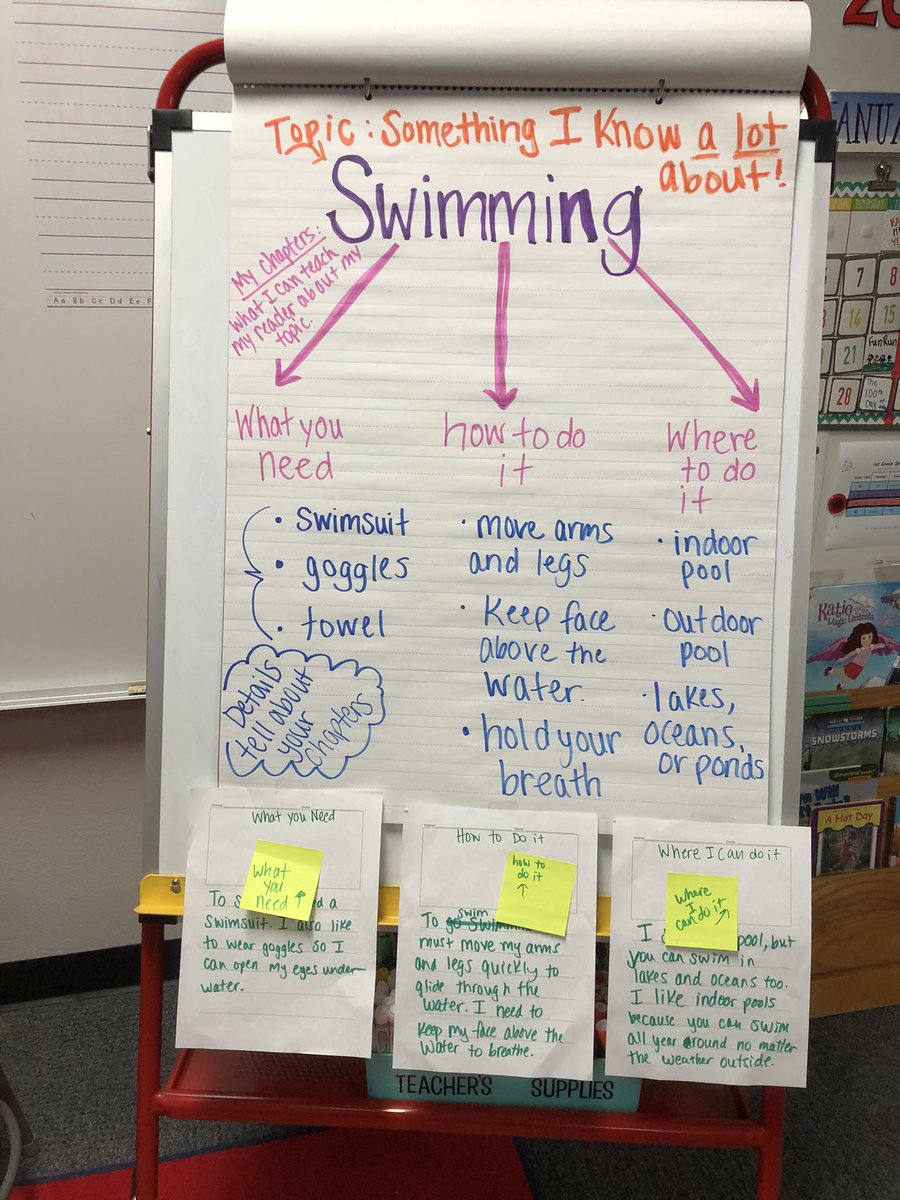 Topic: Something I know a lot
about!
Swimming
My chapters:
What I can teach
my reader about my
topic.
What you
need
• swimsuit
• goggles
• towel
Details
tell about
your
chapters
how to do
it
• move arms
and legs
• Keep face
above the
water.
• hold your
breath
Where
to do
it
• indoor
pool
• outdoor
pool
• lakes,
oceans,
or ponds
What you Need
What
you
need ↑
To a
swimsuit. I also like
to wear goggles so I
can open my eyes under
water.
How to Do it
how to
do it
↑
swim
To go
must move my arms
and legs quickly to
glide through the
water. I need to
keep my face above the
water to breathe.
Where I Can do it
Where
I
can do it ↗
I pool, but
you can swim in
lakes and oceans too.
I like indoor pools
because you can swim
all year around no matter
the weather outside.
TEACHER'S SUPPLIES
Aa Bb Cc Dd Ee F
20
JANUA
THURSDAY
7 8
14 15
21 Fun Run
28 The
100th
Day
1st Grade
Katie
Magic Umbrella
SNOWSTORMS
A Hot Day